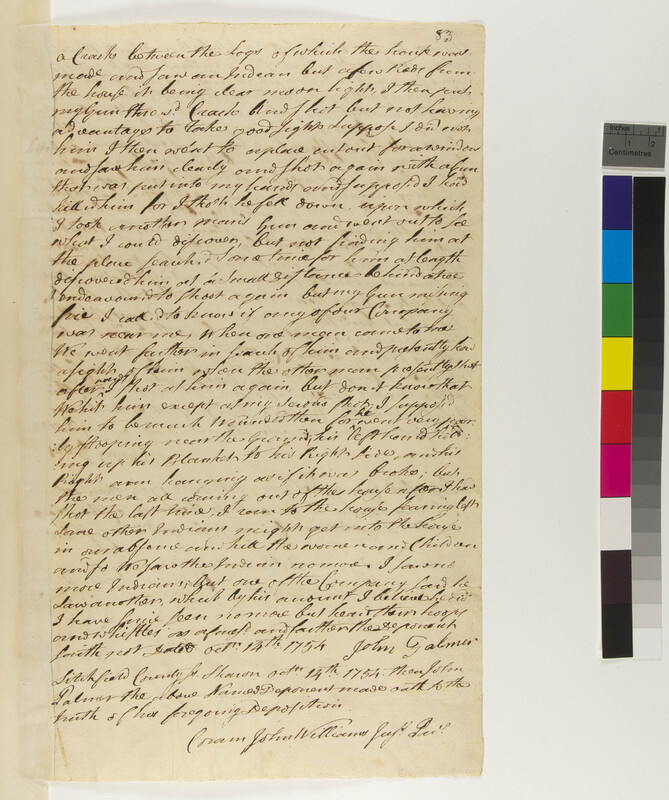 83
a Crack between the logs of which the house was
made and saw an Indian but a few Rods from
the house it being clear moon light, I then put
my Gun thro sd. Crack and shot but not having
advantage to take good sight suppose I did not
him I then went to a place cut out for a window
and saw him clearly and shot again with a Gun
that was put into my hands and supposed I had
killed him for I thot he fell down, upon which
I took another mans Gun and went out to see
what I could discover, but not finding him at
the place search'd some time for him at length
discovered him at a small distance behind a tree
endeavour'd to shoot again but my Gun missing
fire I call'd to know if any of our Company
was near me when one man came to me
We went farther in search of him and presently had
a sight of him when the other man presently shot
afterwards I shot at him again but don't know that
We hit him except at my second shot; I suppos'd
him to be much wounded then for he went very
ly stooping near the Ground, his left hand hold=
ing up his Blanket to his Right side, and his
Right arm hanging as if it was broke; but
the men all coming out of the house after I had
shot the last time, I ran to the house fearing lest
some other Indians might get into the house
in our absence and kill the women and Children
and so We saw the Indian no more I saw no
more Indians; But one of the Company said he
saw another, which by his account I believe he did
I have since seen no more but heard their hoops
and whistles as and farther the Deponent
saith not Dated octr. 14th 1754 John Palmer
Litchfield County Ss Sharon octr. 14th 1754 then John
Palmer the above Named Deponent made oath to the
truth of his foregoing Deposition
Coram John Williams Just. Pac.
Inches
1
2
Centimetres